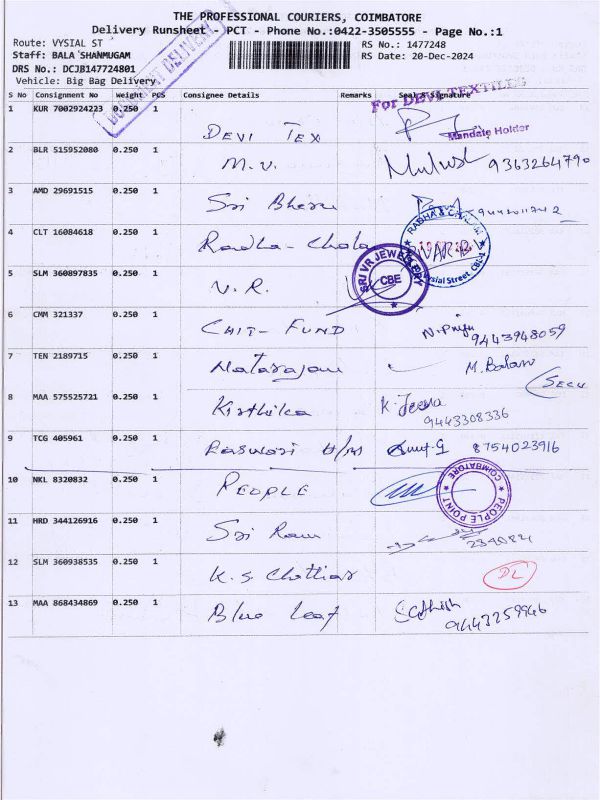 THE PROFESSIONAL COURIERS, COIMBATORE
Delivery Runsheet - PCT - Phone No.:0422-3505555 - Page No.:1
Route: VYSIAL ST
RS No.: 1477248
Staff: BALA SHANMUGAM
RS Date: 20-Dec-2024
DRS No.: DCJB147724801
Vehicle: Big Bag Delivery
S No Consignment No Weight PCS Consignee Details Remarks Seal & Signature
For DEVI TEXTILES
1 KUR 7002924223 0.250 1 DEVI TEX
Mandate Holder
2 BLR 515952080 0.250 1 M.V. 9363264790
3 AMD 29691515 0.250 1 Sri
4 CLT 16084618 0.250 1 Radha-Chola
RADHA &
Vysial Street, CBE-1
5 SLM 360897835 0.250 1 V.R.
SRI VR JEWELLERY
CBE
6 CMM 321337 0.250 1 CHIT-FUND N.Priya
9443948059
7 TEN 2189715 0.250 1 Natarajan M.Balan
8 MAA 575525721 0.250 1 Kirthika K.Jeena
9443308336
9 TCG 405961 0.250 1 8754023916
10 NKL 8320832 0.250 1 PEOPLE
PEOPLE POINT
COIMBATORE
11 HRD 344126916 0.250 1 Sri Ram
12 SLM 360938535 0.250 1 K.S. Chettiar DL
13 MAA 868434869 0.250 1 Blue Leaf Sathish
9443259946